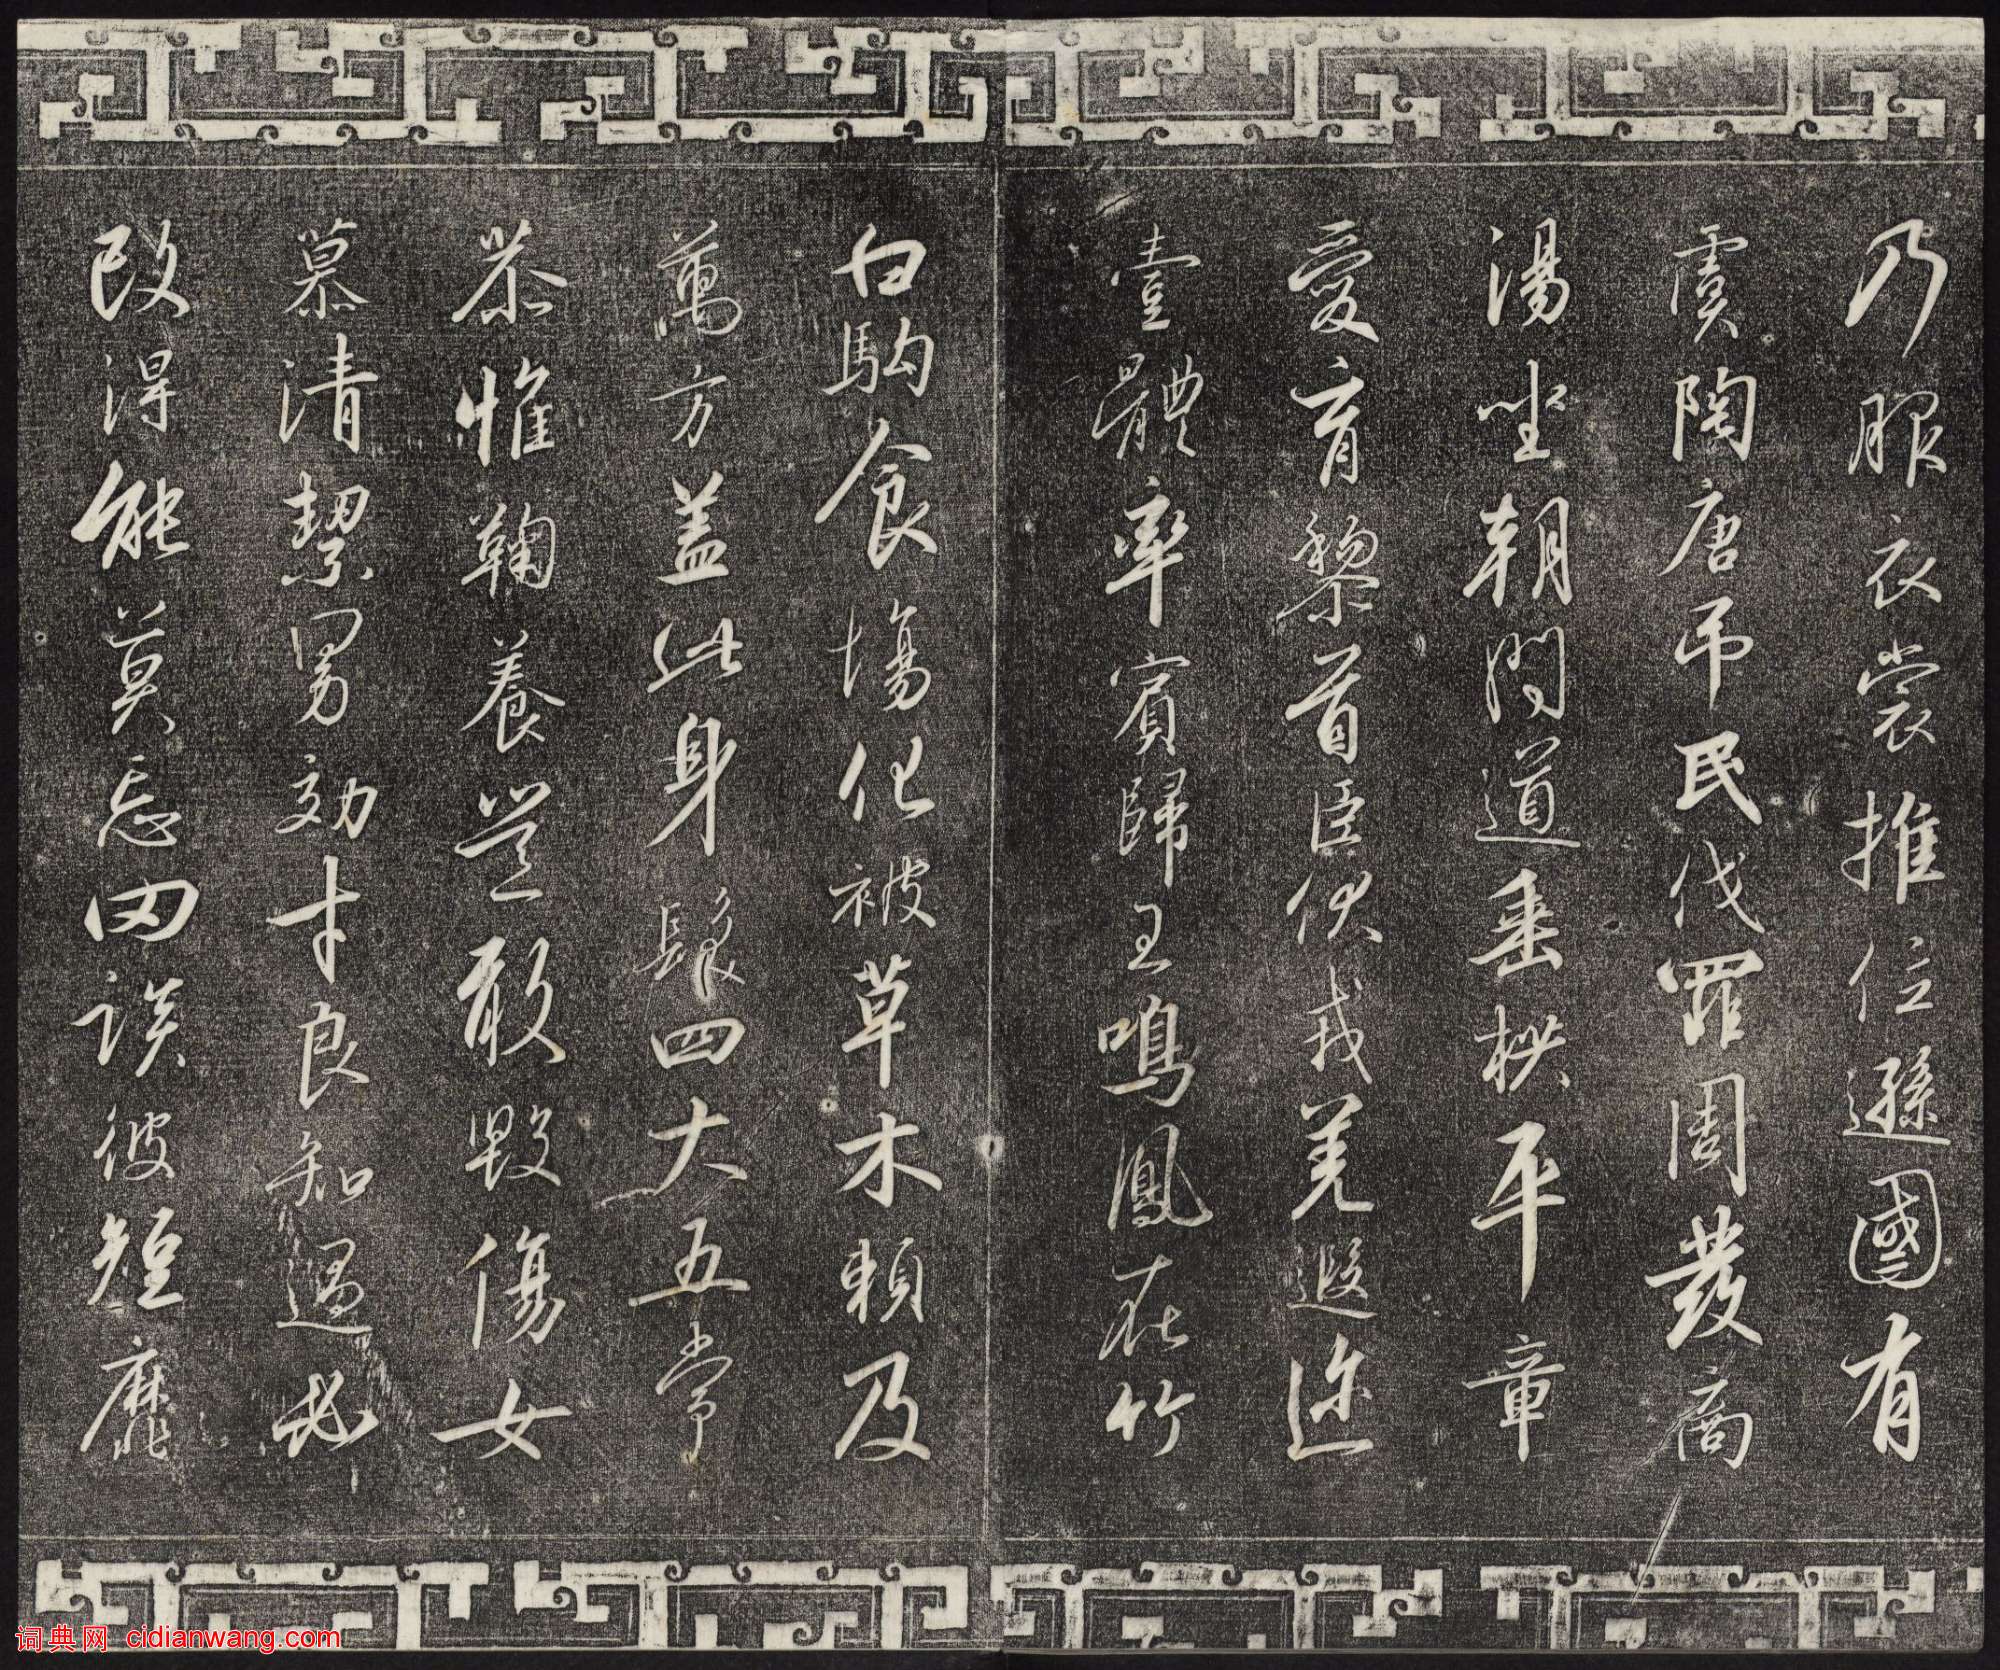 乃服衣裳推位遜國有
虞陶唐弔民伐罪周發商
湯坐朝問道垂拱平章
愛育黎首臣伏戎羌遐迩
壹體率賓歸王鳴鳳在竹
白駒食場化被草木賴及
萬方盖此身髮四大五常
恭惟鞠養豈敢毀傷女
慕清絜男効才良知過必
改得能莫忘罔談彼短靡
词典网 cidianwang.com